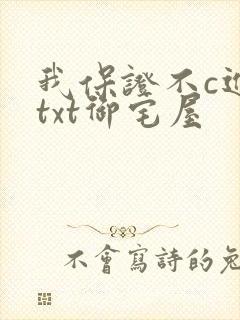 我保證不c進
txt御宅屋
不會寫詩的兔